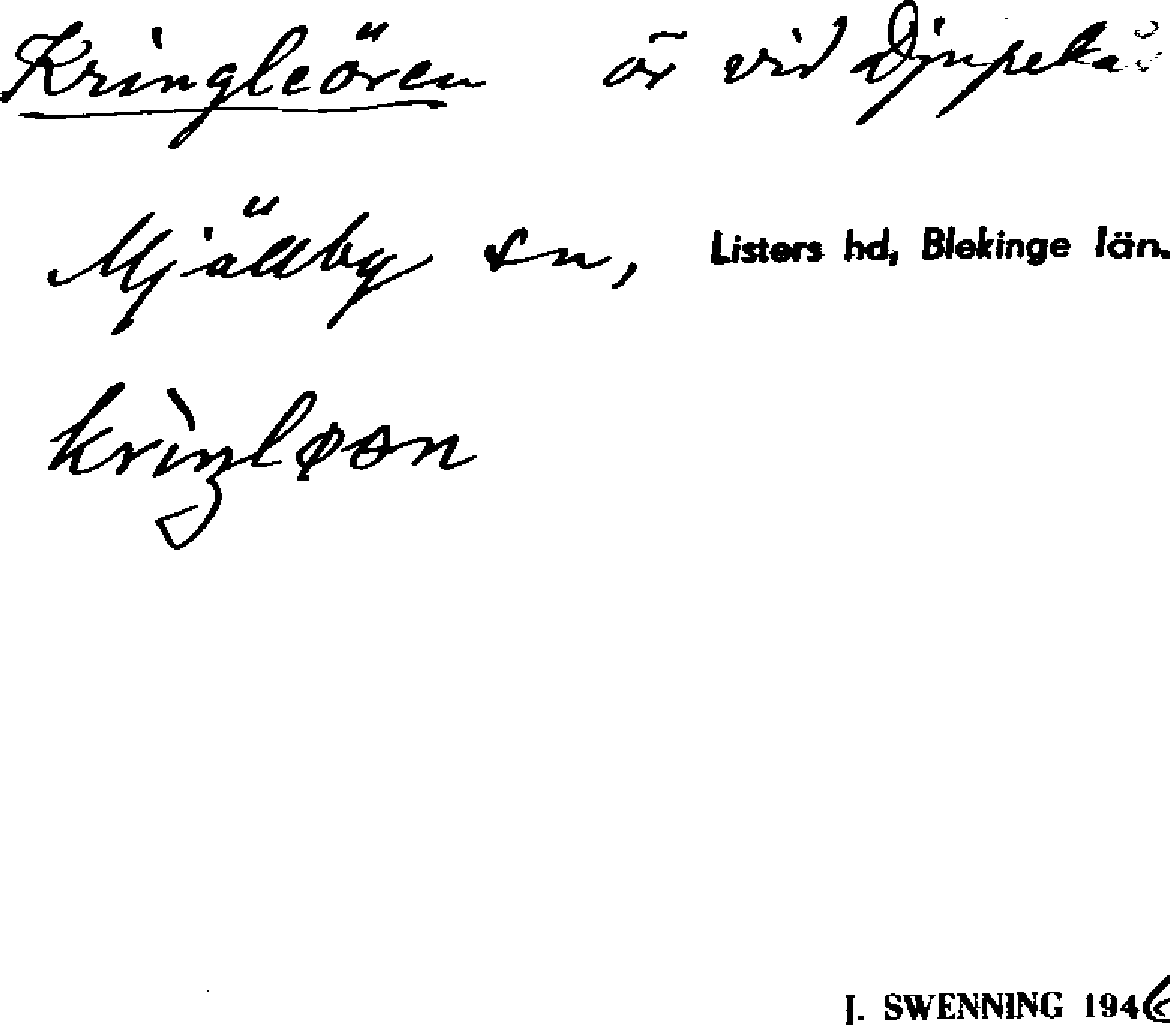 Kringleören ör vid Djupekås
Mjällby sn, Listers hd, Blekinge län.
J. SWENNING 1946